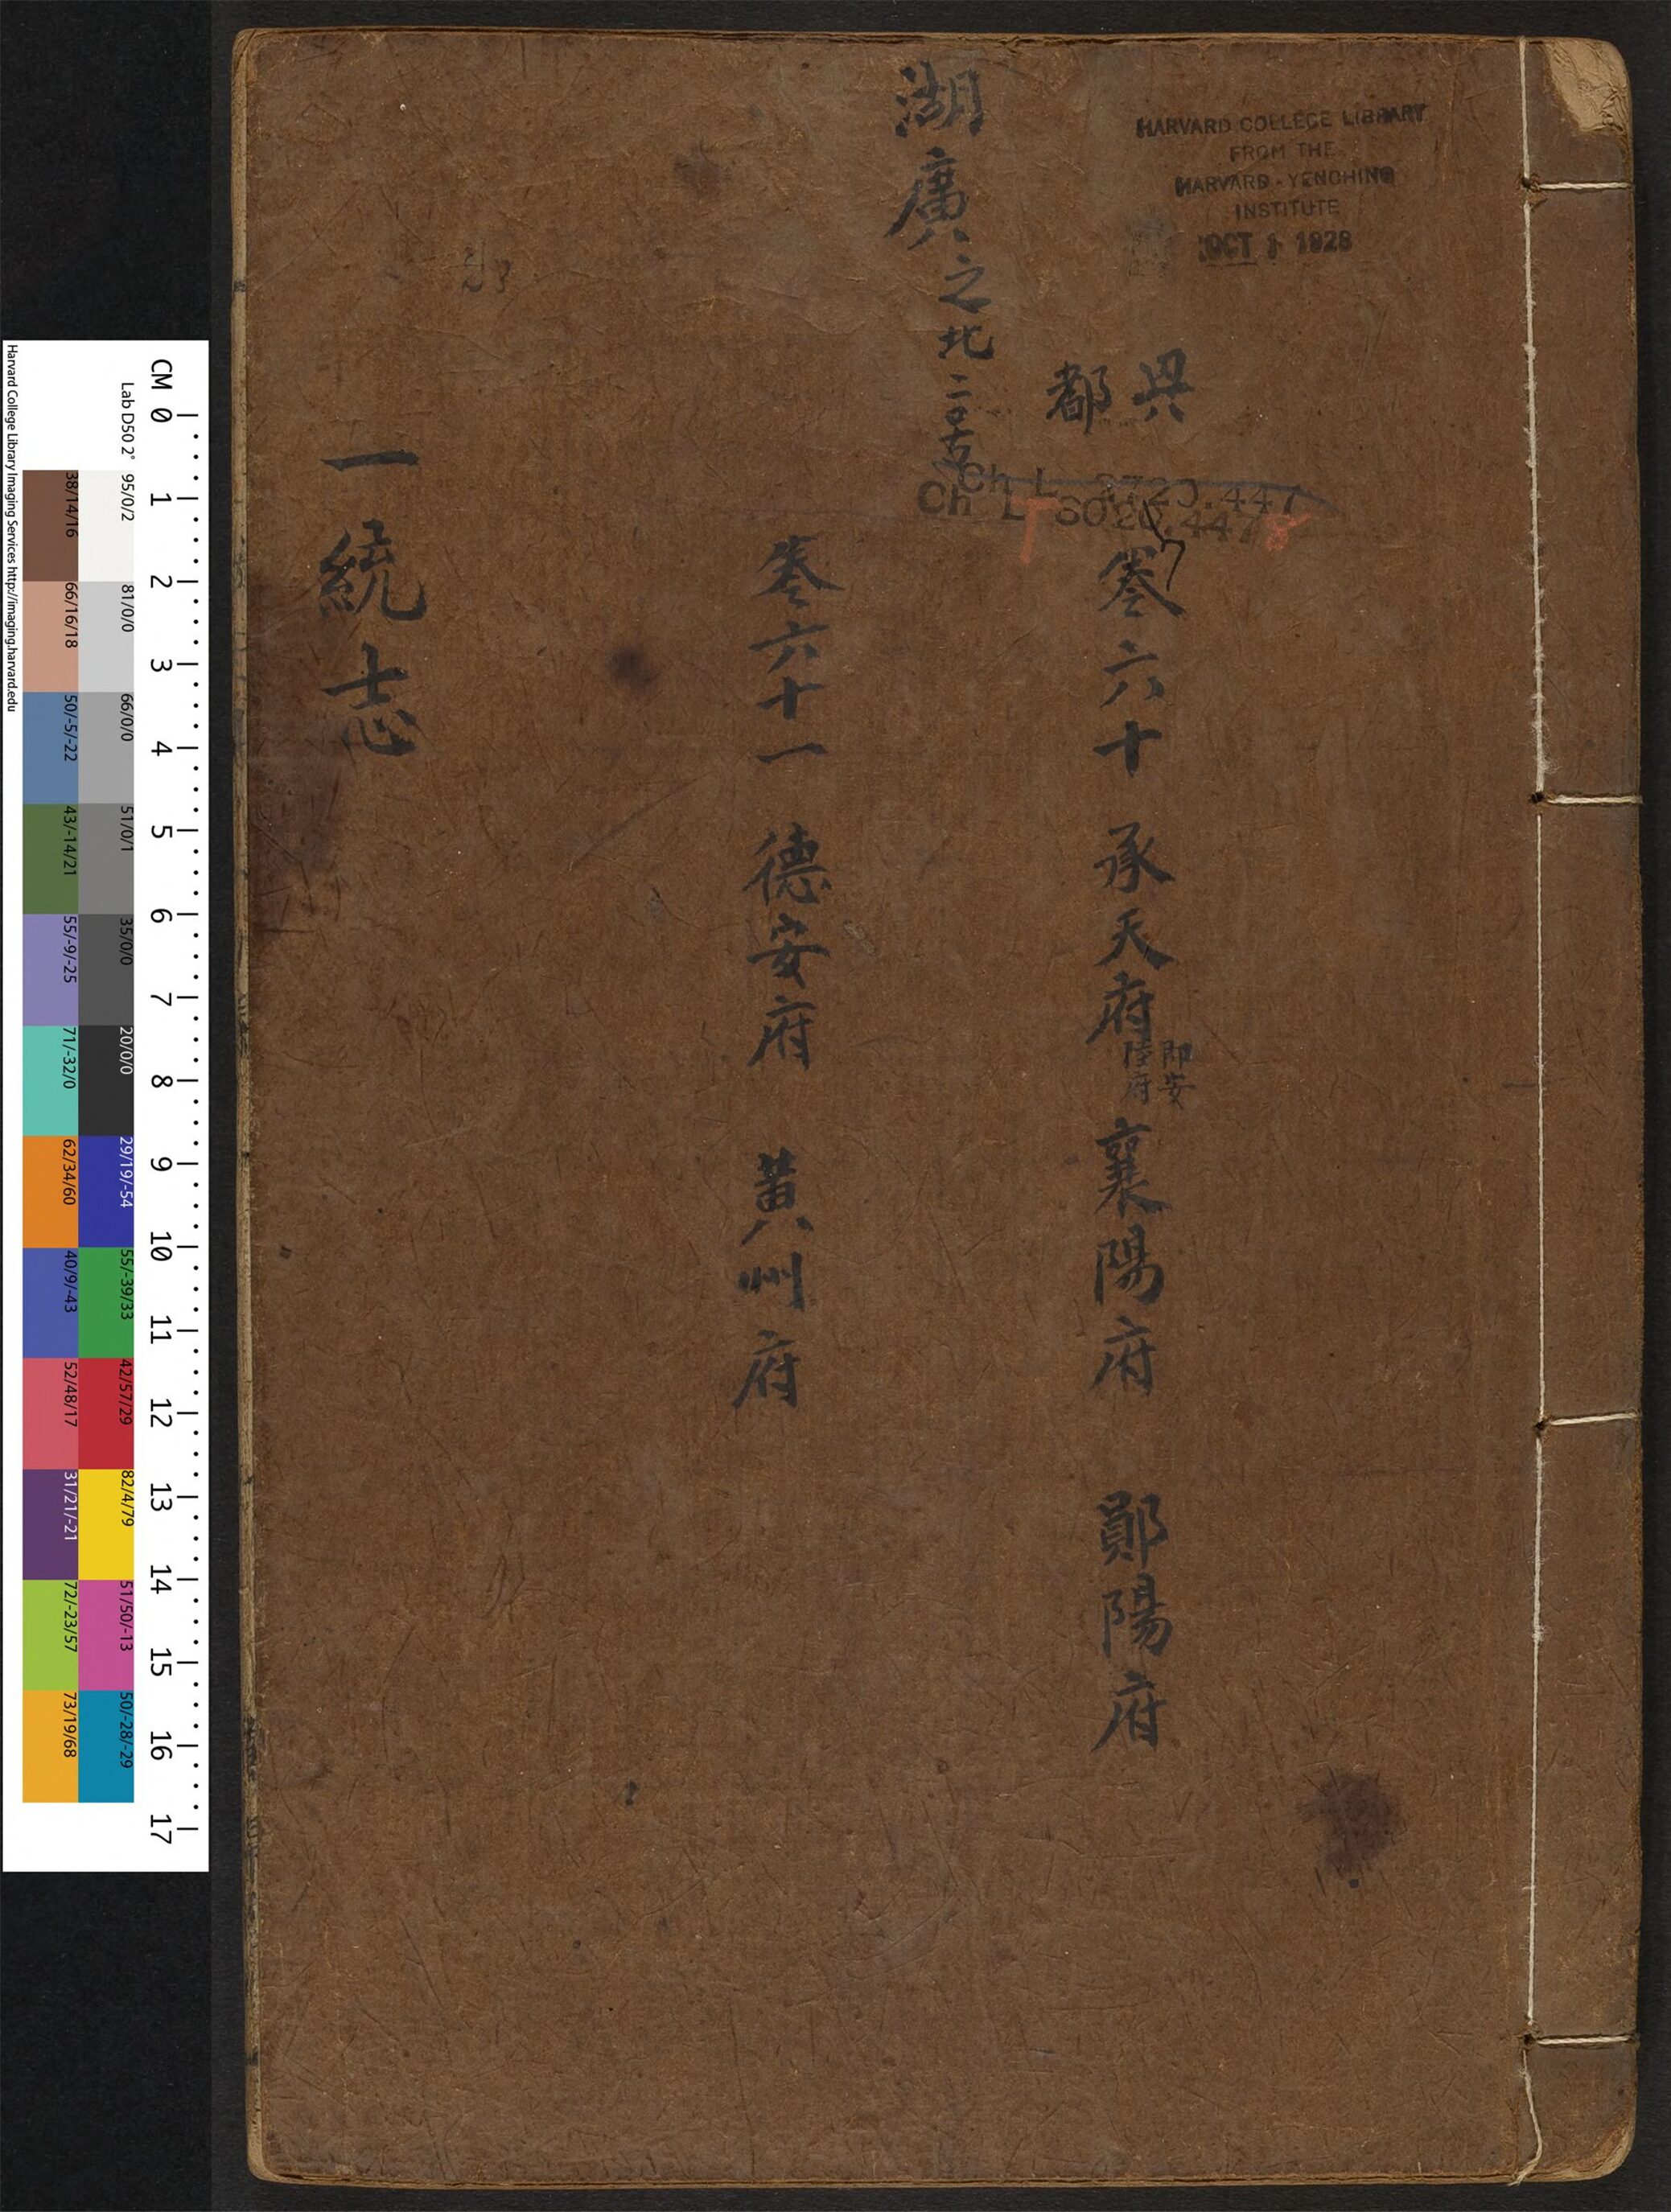 HARVARD COLLEGE LIBRARY
FROM THE
HARVARD-YENCHING
INSTITUTE
OCT 1 1928
湖廣之北二号
兴都
卷六十 承天府 即安陸府 襄陽府 鄖陽府
卷六十一 德安府 黄州府
一統志
Ch L
Ch L
CM 0 1 2 3 4 5 6 7 8 9 10 11 12 13 14 15 16 17
Lab D50 2° 95/0/2 81/0/0 66/0/0 51/0/1 35/0/0 20/0/0 29/19/-54 55/-39/33 42/57/29 82/4/79 51/50/-13 50/-28/-29
38/14/16 66/16/18 50/-5/-22 43/-14/21 55/-9/-25 71/-32/0 62/34/60 40/9/-43 52/48/17 31/21/-21 72/-23/57 73/19/68
Harvard College Library Imaging Services http://imaging.harvard.edu